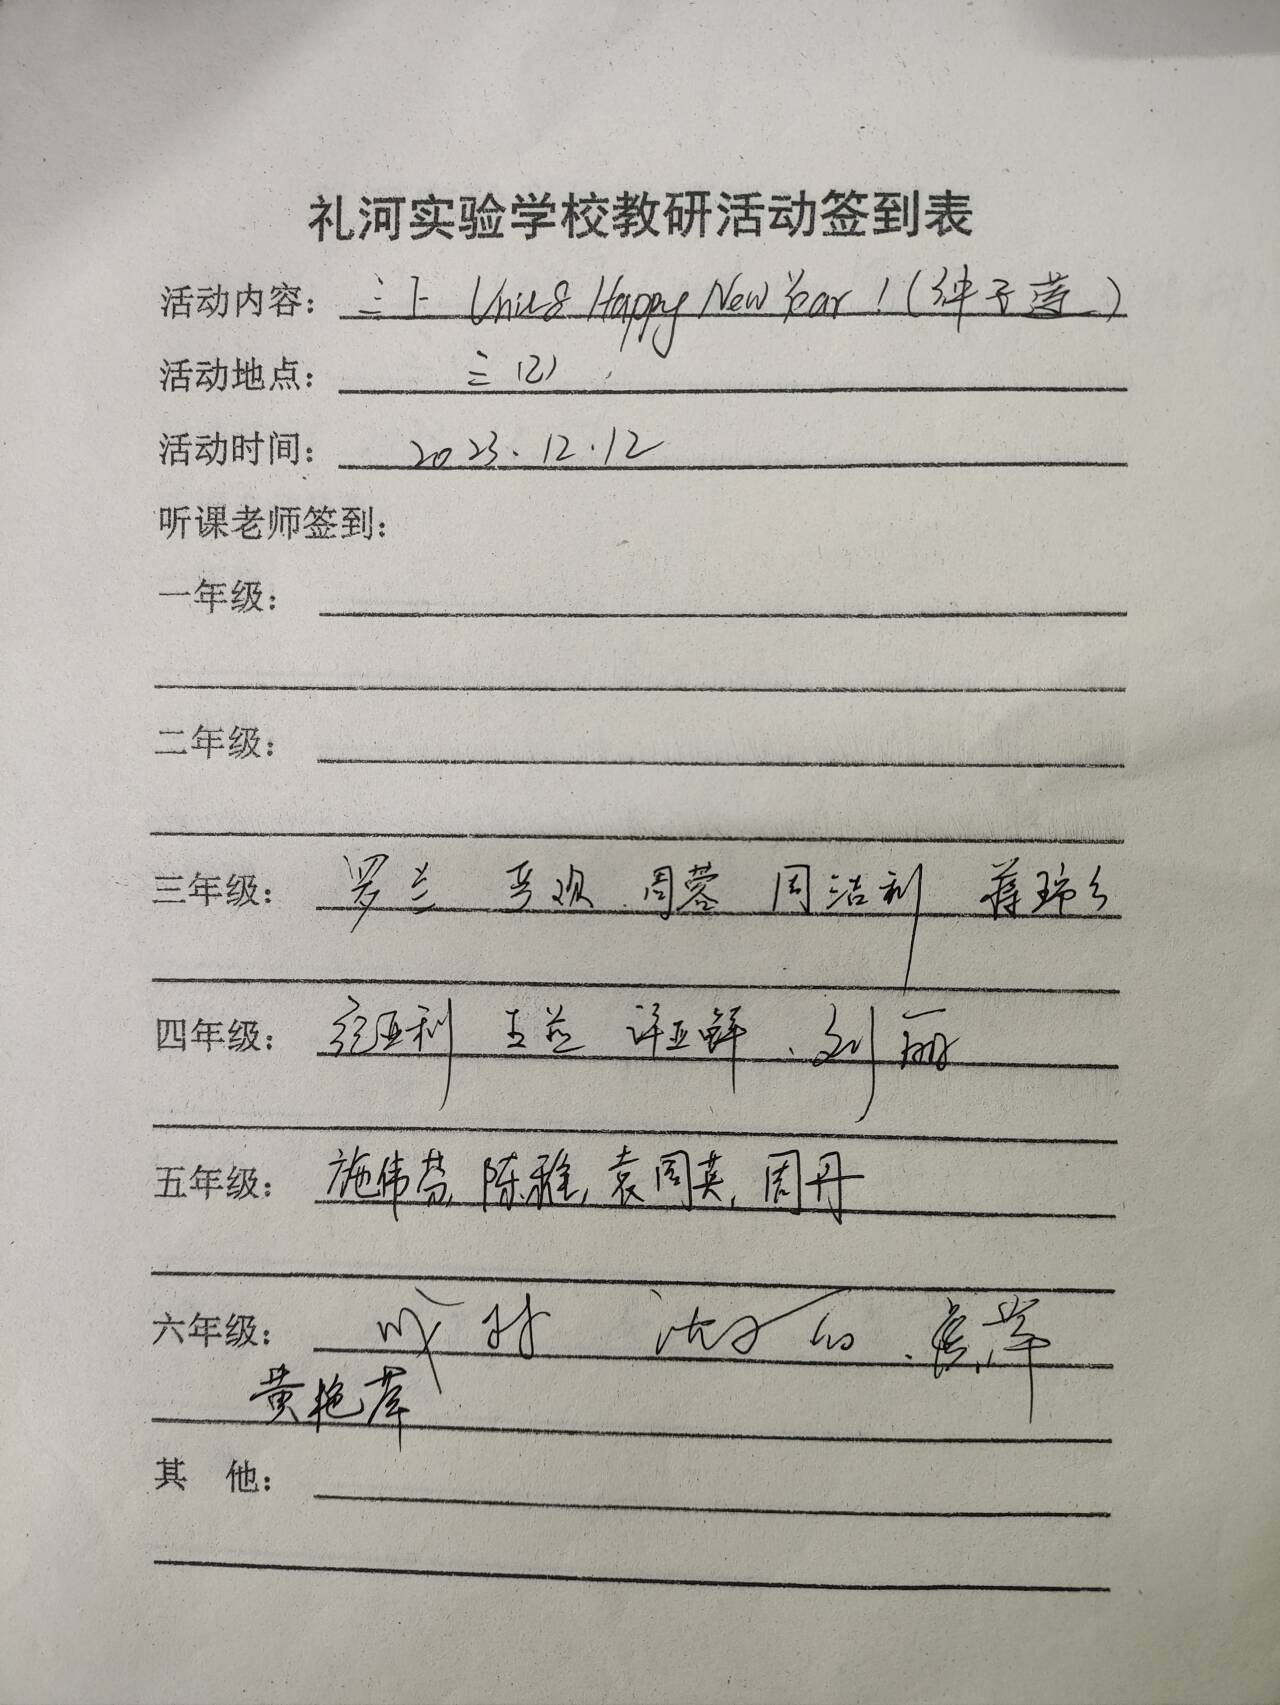 礼河实验学校教研活动签到表
活动内容: 三上 Unit8 Happy New Year!(钟子莲)
活动地点: 三(2)
活动时间: 2023.12.12
听课老师签到:
一年级:
二年级:
三年级: 罗兰 周蓉 周洁利
四年级: 王益 许亚鲜、刘丽
五年级: 施伟芬, 陈雅, 袁周英, 周丹
六年级:
黄艳萍
其 他: